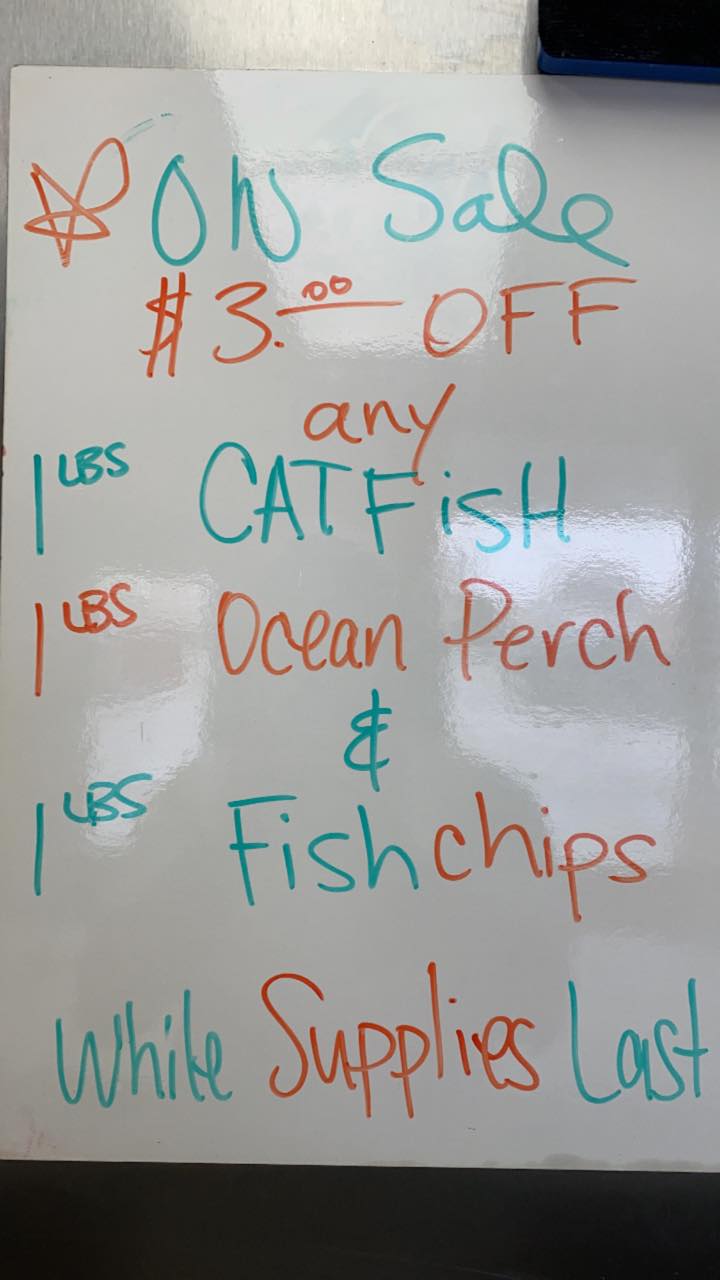 ON Sale
$3.00 OFF
any
1 LBS CATFisH
1 LBS Ocean Perch
&
1 LBS Fishchips
While Supplies Last